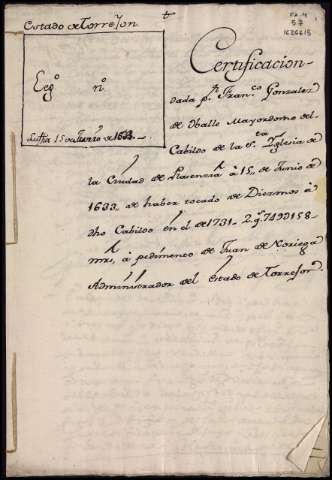 Estado de Torrejon
Leg.º n.º
Fecha 15 de Junio de 1633
Certificacion
dada p.r Fran.co Gonzalez
de Ovalle Mayordomo del
Cabildo de la S.ta Yglesia de
la Ciudad de Plasencia à 15 de Junio de
1633 de haber tocado de Diezmos à
dho Cabildo en el de 1731-2 q.s 7499158
mrs, à pedimento de Juan de Noriega
Administrador del Estado de Torrejon